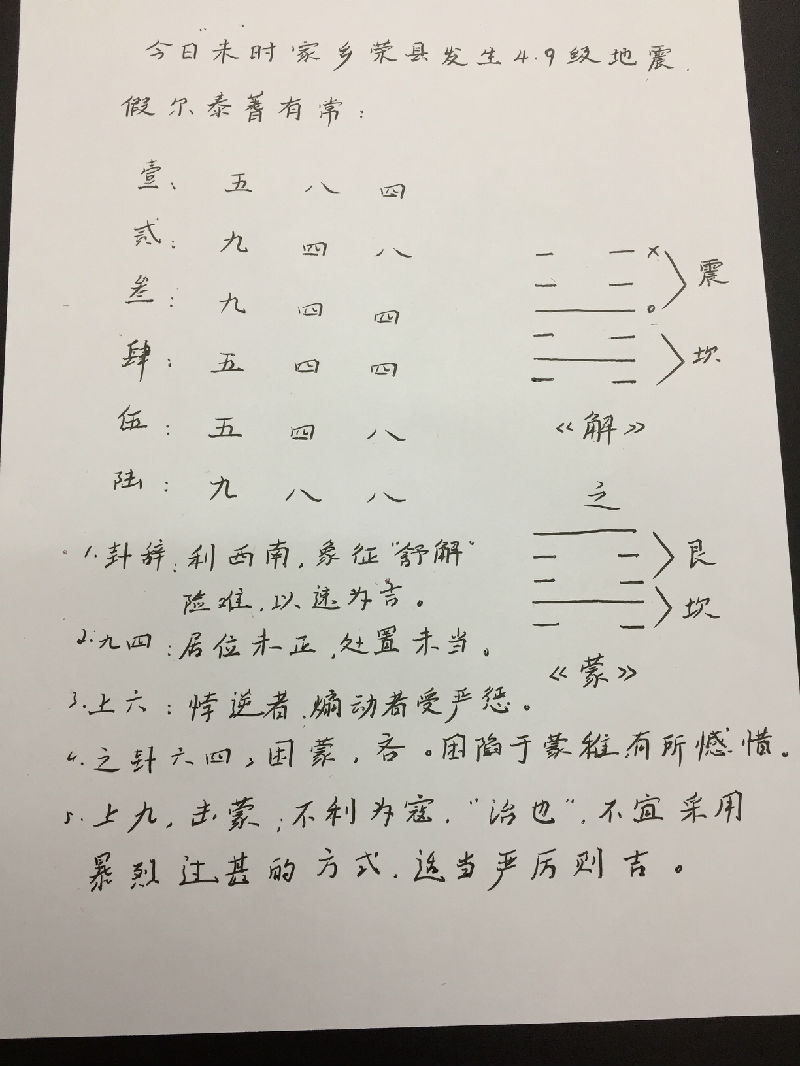 今日未时家乡荣县发生4.9级地震.
假尔泰蓍有常：
壹：五 八 四
贰：九 四 八
叁：九 四 四
肆：五 四 四
伍：五 四 八
陆：九 八 八
× 震
○
坎
《解》
之
艮
坎
《蒙》
1.卦辞：利西南，象征“舒解”
险难，以速为吉。
2.九四：居位未正，处置未当。
3.上六：悖逆者、煽动者受严惩。
4.之卦六四，困蒙，吝。困陷于蒙稚，有所憾惜。
5.上九，击蒙；不利为寇，“治也”，不宜采用
暴烈过甚的方式，适当严厉则吉。